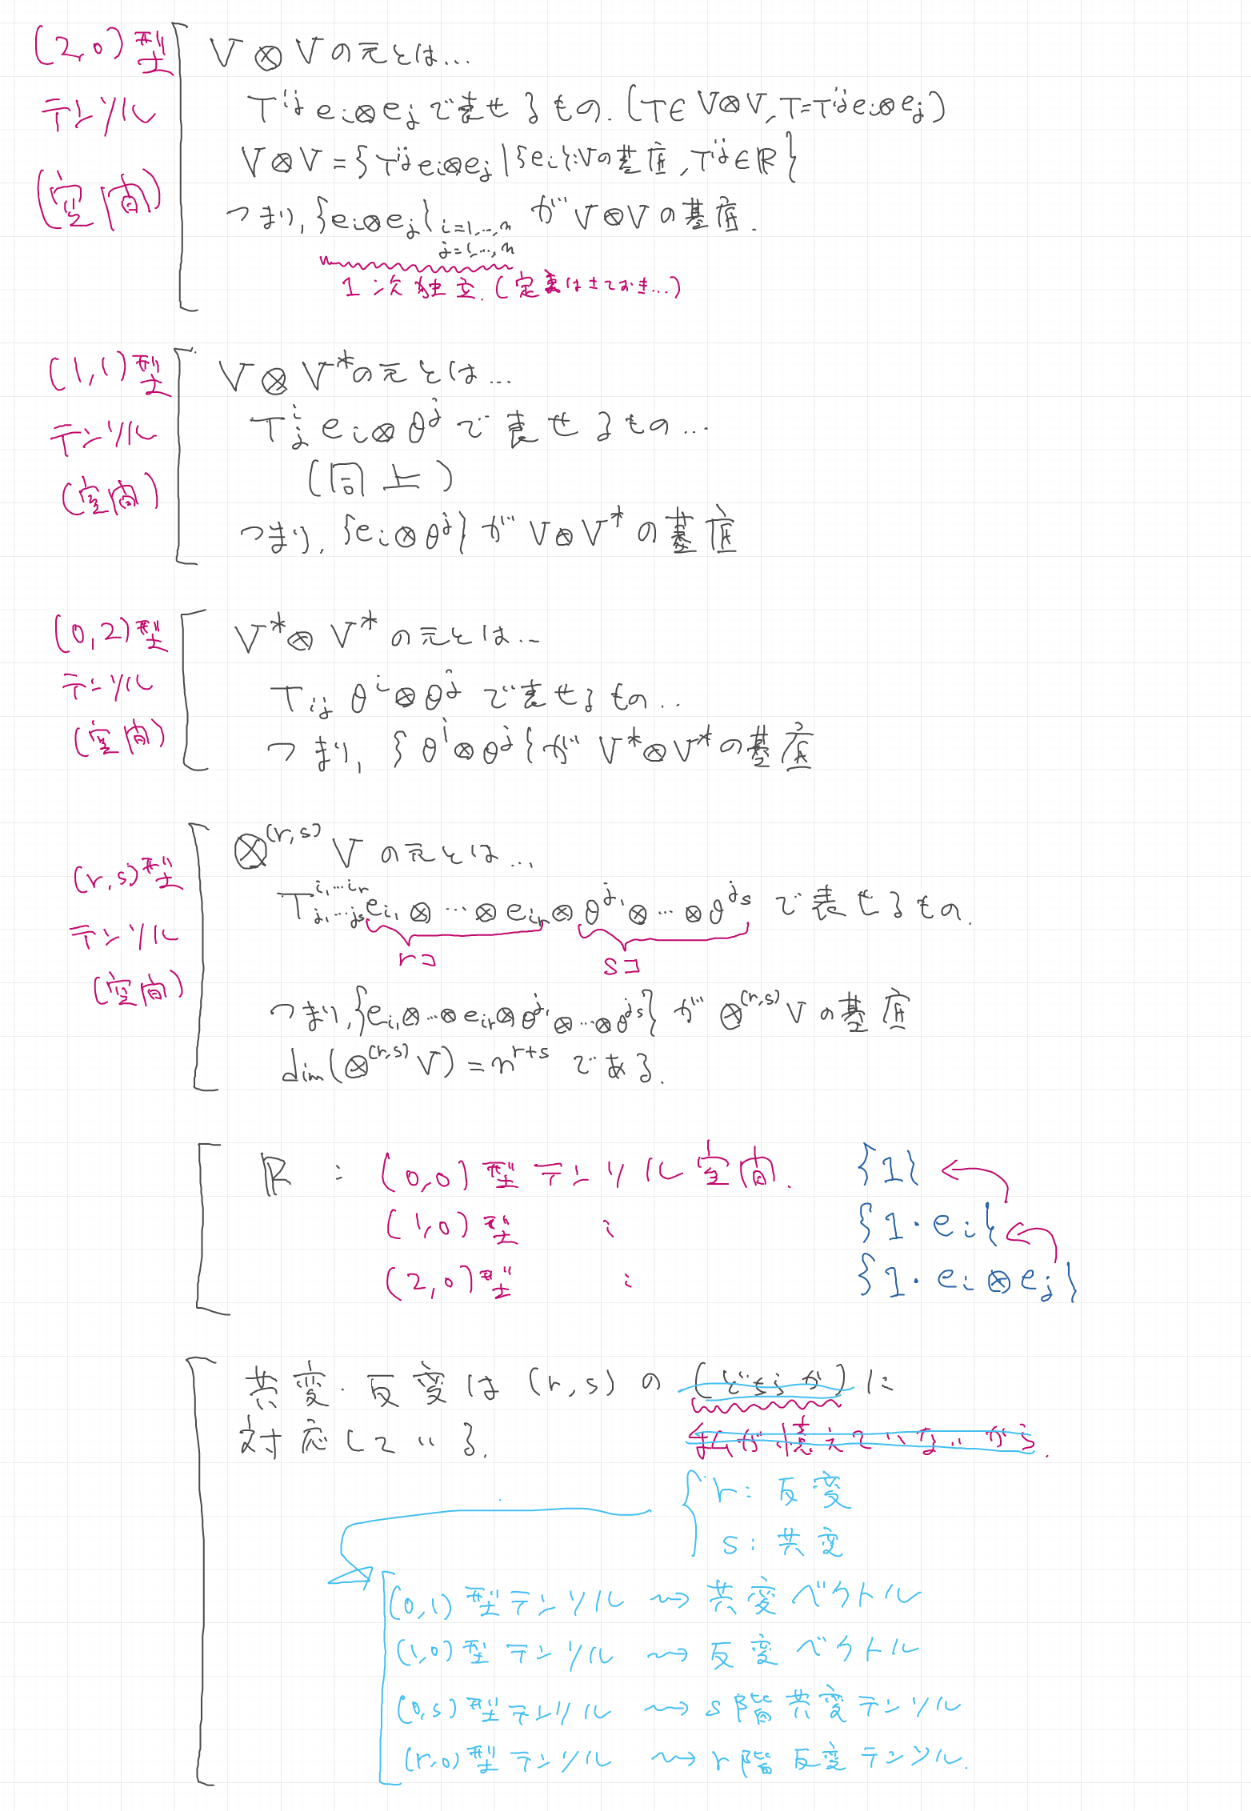 (2,0)型
テンソル
(空間)
V⊗Vの元とは...
T^{ij} e_i⊗e_j で表せるもの. (T∈V⊗V, T=T^{ij}e_i⊗e_j)
V⊗V={T^{ij}e_i⊗e_j | {e_i}:Vの基底, T^{ij}∈ℝ}
つまり, {e_i⊗e_j}_{i=1,...,n j=1,...,n} が V⊗V の基底.
1次独立. (定義はさておき...)
(1,1)型
テンソル
(空間)
V⊗V*の元とは...
T^i_j e_i⊗θ^j で表せるもの...
(同上)
つまり, {e_i⊗θ^j} が V⊗V* の基底
(0,2)型
テンソル
(空間)
V*⊗V* の元とは...
T_{ij} θ^i⊗θ^j で表せるもの...
つまり, {θ^i⊗θ^j} が V*⊗V* の基底
(r,s)型
テンソル
(空間)
⊗^{(r,s)} V の元とは...
T^{i_1...i_r}_{j_1...j_s} e_{i_1}⊗...⊗e_{i_r}⊗θ^{j_1}⊗...⊗θ^{j_s} で表せるもの.
rコ sコ
つまり, {e_{i_1}⊗...⊗e_{i_r}⊗θ^{j_1}⊗...⊗θ^{j_s}} が ⊗^{(r,s)}V の基底
dim(⊗^{(r,s)}V)=n^{r+s} である.
ℝ : (0,0)型テンソル空間. {1}
(1,0)型 : {1・e_i}
(2,0)型 : {1・e_i⊗e_j}
共変・反変は(r,s)の(どちらか)に
対応している. 私が憶えていないから.
r: 反変
s: 共変
(0,1)型テンソル ⇝ 共変ベクトル
(1,0)型テンソル ⇝ 反変ベクトル
(0,s)型テンソル ⇝ s階共変テンソル
(r,0)型テンソル ⇝ r階反変テンソル.